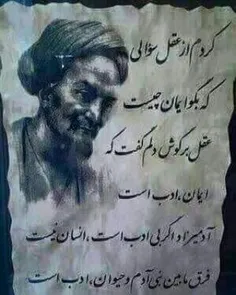 کردم از عقل سؤالی
که بگو ایمان چیست
عقل بر گوش دلم گفت که
ایمان، ادب است
آدمیزاد اگر بی ادب است، انسان نیست
فرق ما بین بنی آدم و حیوان، ادب است